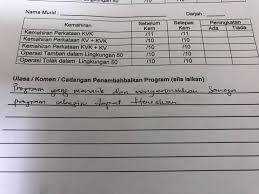 Nama Murid :                Darjah :
Kemahiran Sebelum Kem Selepas Kem Peningkatan Ada Tiada
Kemahiran Perkataan KVK /11 /11
Kemahiran Perkataan KV + KV /10 /10
Kemahiran Perkataan KV + KVK /10 /10
Operasi Tambah dalam Lingkungan 50 /10 /10
Operasi Tolak dalam Lingkungan 50 /10 /10
Ulasa / Komen / Cadangan Penambahbaikan Program (sila isikan)
Program yang menarik dan Semoga
program sebegini dapat